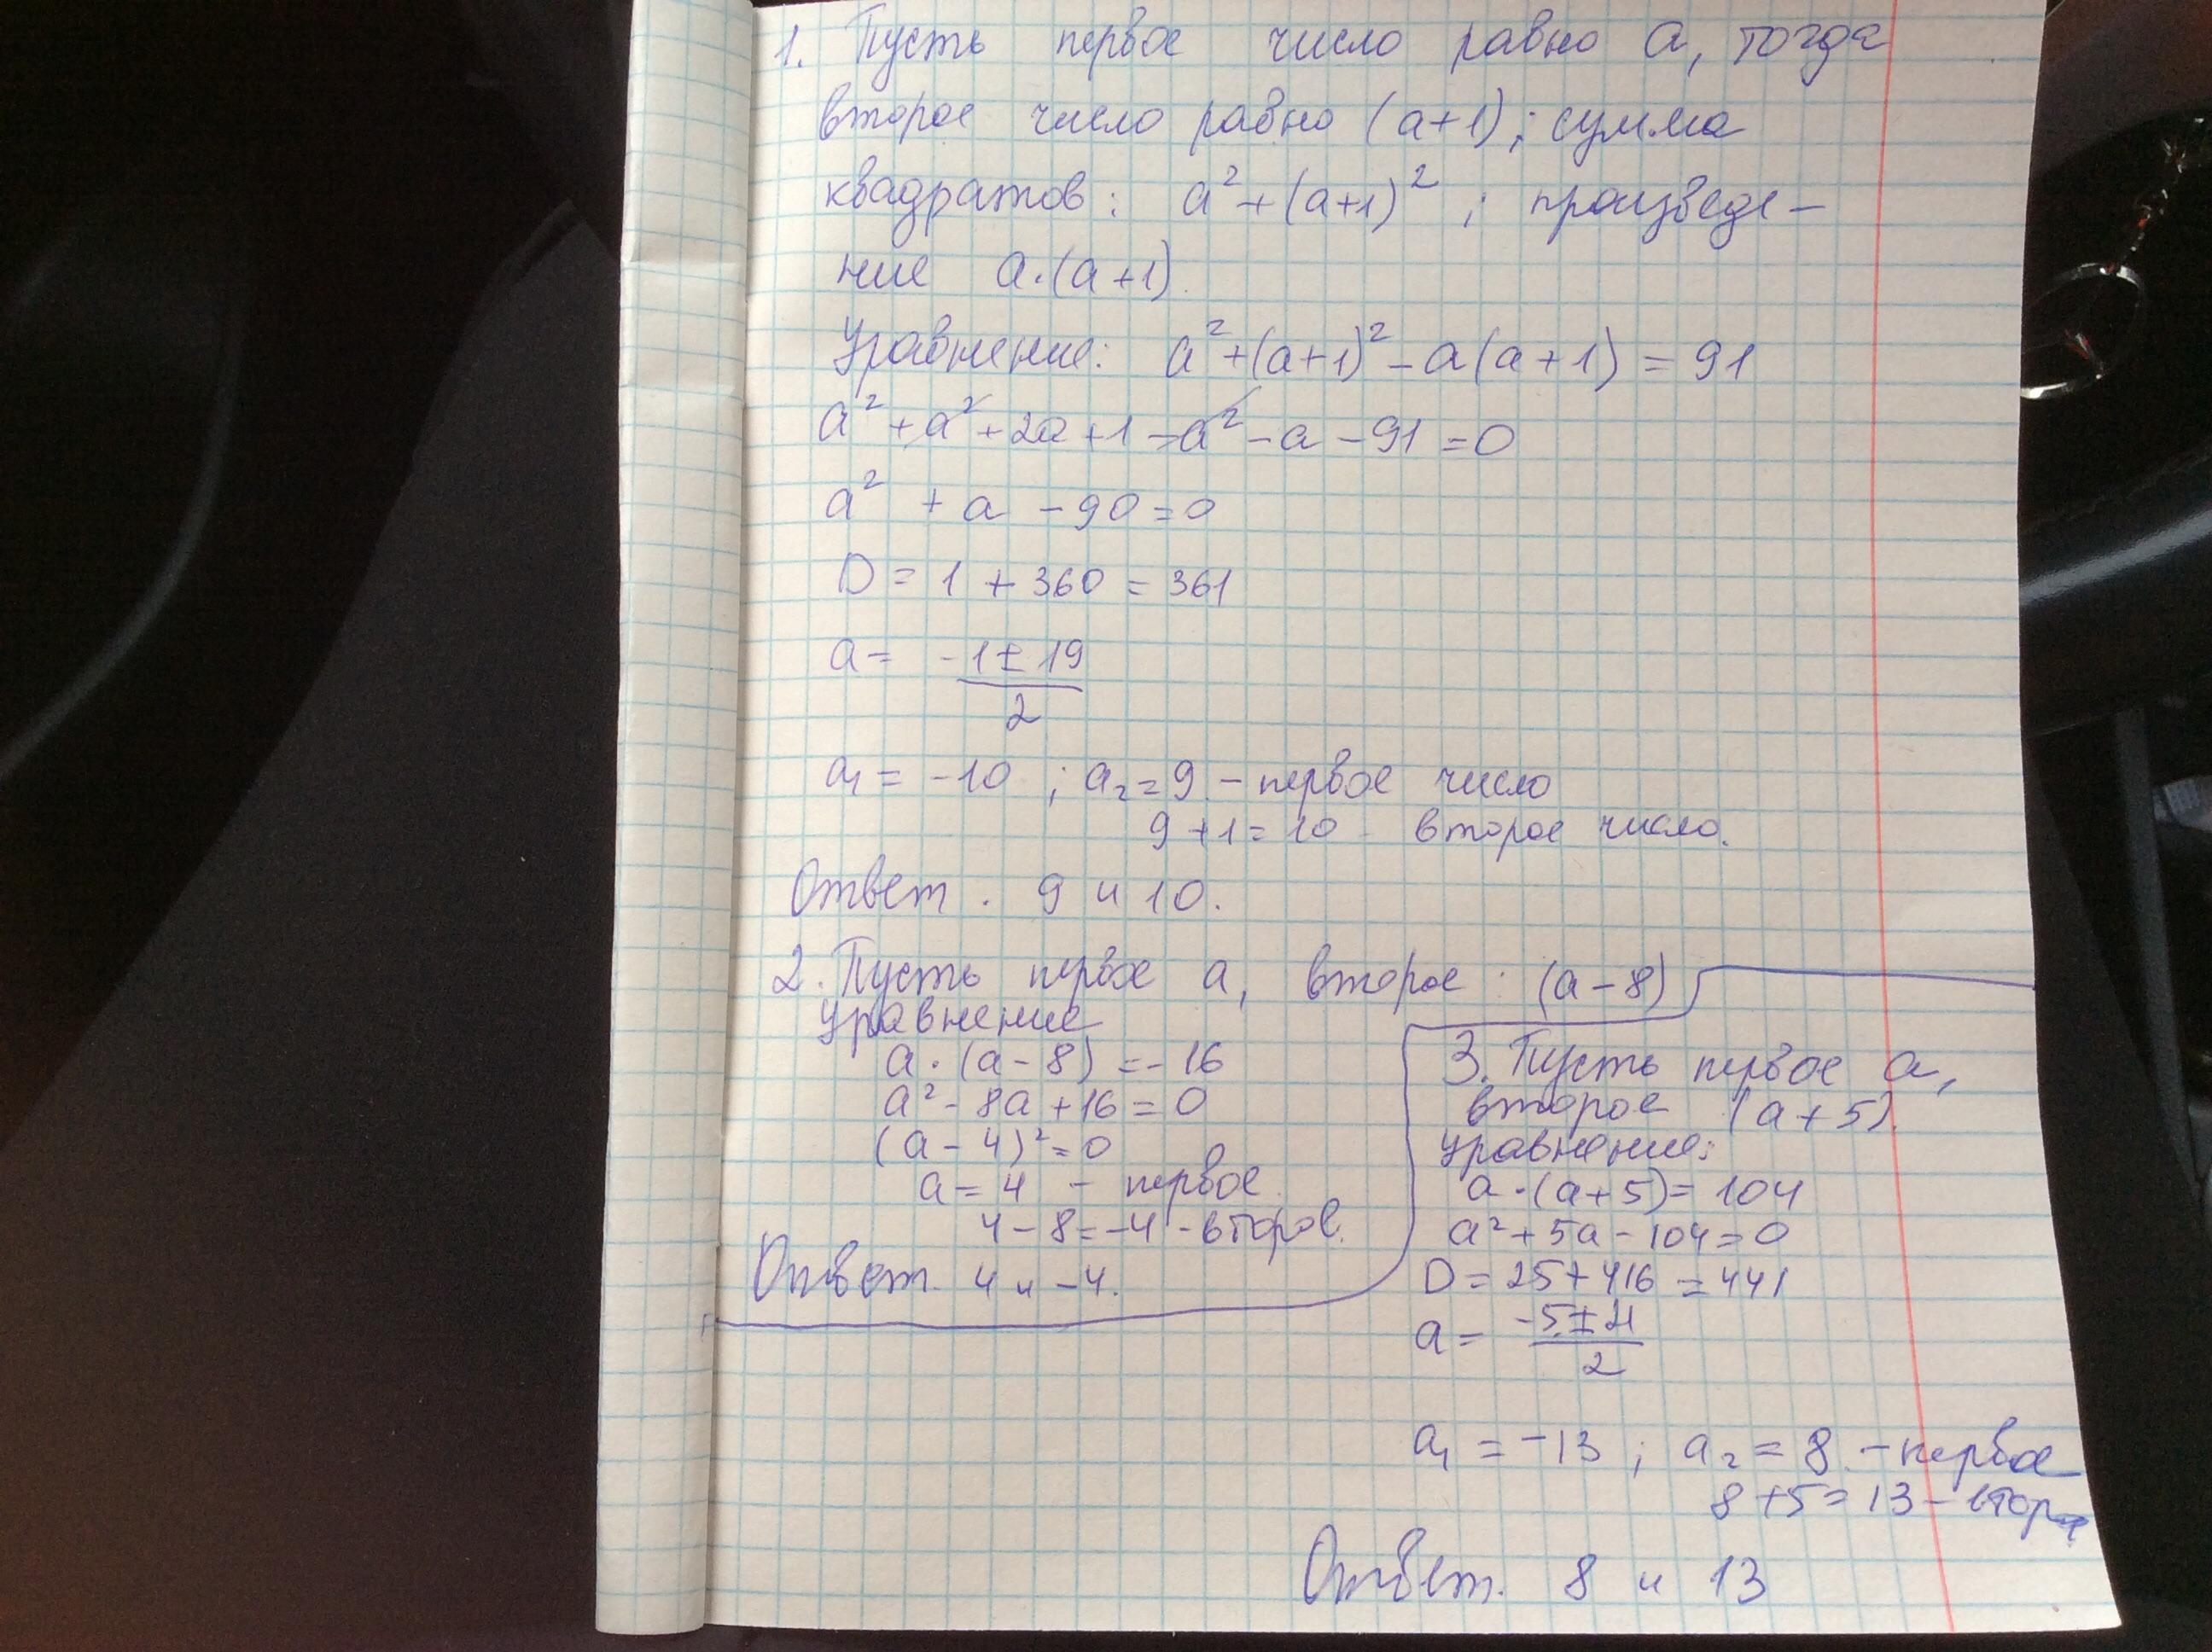 1. Пусть первое число равно a, тогда
второе число равно (a+1); сумма
квадратов: a²+(a+1)²; произведе-
ние a·(a+1).
Уравнение: a²+(a+1)²-a(a+1)=91
a²+a²+2a+1-a²-a-91=0
a²+a-90=0
D=1+360=361
a= -1±19
2
a₁=-10; a₂=9-первое число
9+1=10 второе число.
Ответ. 9 и 10.
2. Пусть первое a, второе: (a-8)
уравнение
a·(a-8)=-16
a²-8a+16=0
(a-4)²=0
a=4 - первое.
4-8=-4-второе.
Ответ. 4 и -4.
3. Пусть первое a,
второе (a+5).
уравнение:
a·(a+5)=104
a²+5a-104=0
D=25+416=441
a= -5±21
2
a₁=-13; a₂=8.-первое
8+5=13-второе
Ответ. 8 и 13